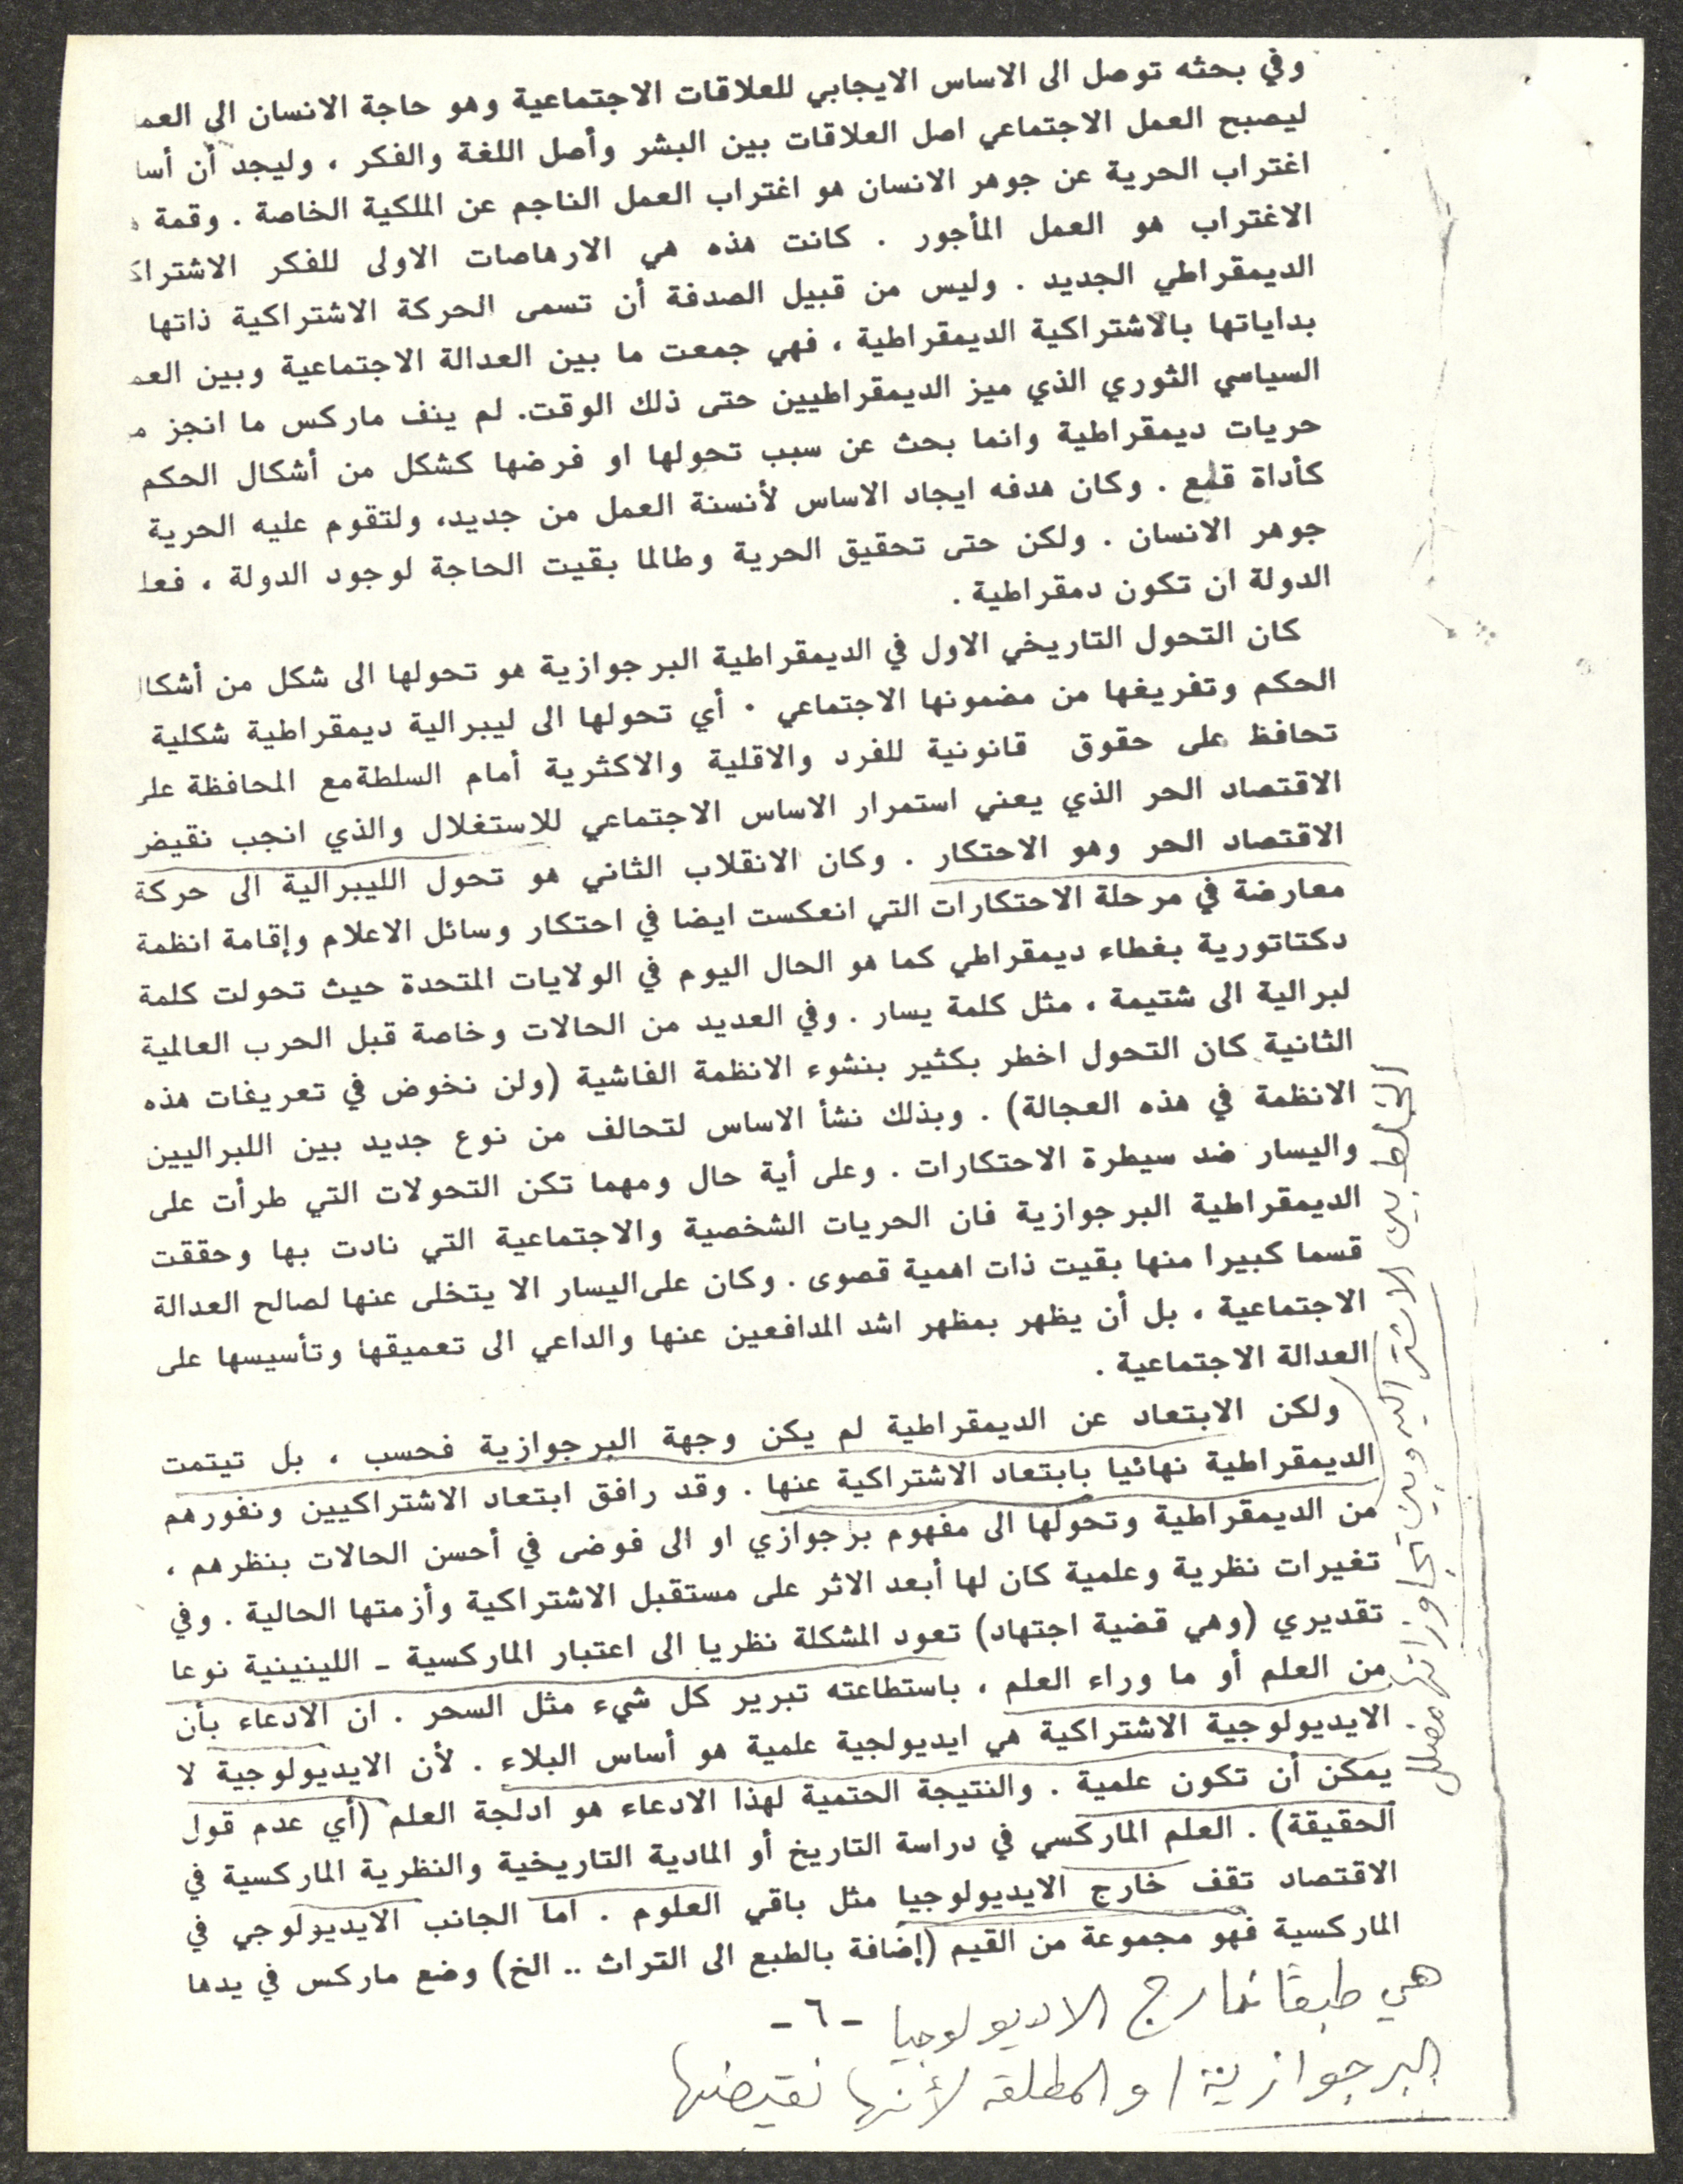 وفي بحثه توصل الى الاساس الايجابي للعلاقات الاجتماعية وهو حاجة الانسان الى العمـ
ليصبح العمل الاجتماعي اصل العلاقات بين البشر وأصل اللغة والفكر ، وليجد أن أسا
اغتراب الحرية عن جوهر الانسان هو اغتراب العمل الناجم عن الملكية الخاصة . وقمة
الاغتراب هو العمل المأجور . كانت هذه هي الارهاصات الاولى للفكر الاشتراك
الديمقراطي الجديد . وليس من قبيل الصدفة أن تسمى الحركة الاشتراكية ذاتها
بداياتها بالاشتراكية الديمقراطية ، فهي جمعت ما بين العدالة الاجتماعية وبين العمـ
السياسي الثوري الذي ميز الديمقراطيين حتى ذلك الوقت. لم ينف ماركس ما انجز مـ
حريات ديمقراطية وانما بحث عن سبب تحولها او فرضها كشكل من أشكال الحكم
كأداة قمع . وكان هدفه ايجاد الاساس لأنسنة العمل من جديد، ولتقوم عليه الحرية
جوهر الانسان . ولكن حتى تحقيق الحرية وطالما بقيت الحاجة لوجود الدولة ، فعلـ
الدولة ان تكون دمقراطية .
كان التحول التاريخي الاول في الديمقراطية البرجوازية هو تحولها الى شكل من أشكال
الحكم وتفريغها من مضمونها الاجتماعي . أي تحولها الى ليبرالية ديمقراطية شكلية
تحافظ على حقوق قانونية للفرد والاقلية والاكثرية أمام السلطة مع المحافظة على
الاقتصاد الحر الذي يعني استمرار الاساس الاجتماعي للاستغلال والذي انجب نقيض
الاقتصاد الحر وهو الاحتكار . وكان الانقلاب الثاني هو تحول الليبرالية الى حركة
معارضة في مرحلة الاحتكارات التي انعكست ايضا في احتكار وسائل الاعلام وإقامة انظمة
دكتاتورية بغطاء ديمقراطي كما هو الحال اليوم في الولايات المتحدة حيث تحولت كلمة
لبرالية الى شتيمة ، مثل كلمة يسار . وفي العديد من الحالات وخاصة قبل الحرب العالمية
الثانية كان التحول اخطر بكثير بنشوء الانظمة الفاشية (ولن نخوض في تعريفات هذه
الانظمة في هذه العجالة) . وبذلك نشأ الاساس لتحالف من نوع جديد بين اللبراليين
واليسار ضد سيطرة الاحتكارات . وعلى أية حال ومهما تكن التحولات التي طرأت على
الديمقراطية البرجوازية فان الحريات الشخصية والاجتماعية التي نادت بها وحققت
قسما كبيرا منها بقيت ذات اهمية قصوى . وكان على اليسار الا يتخلى عنها لصالح العدالة
الاجتماعية ، بل أن يظهر بمظهر اشد المدافعين عنها والداعي الى تعميقها وتأسيسها على
العدالة الاجتماعية .
ولكن الابتعاد عن الديمقراطية لم يكن وجهة البرجوازية فحسب ، بل تيتمت
الديمقراطية نهائيا بابتعاد الاشتراكية عنها . وقد رافق ابتعاد الاشتراكيين ونفورهم
من الديمقراطية وتحولها الى مفهوم برجوازي او الى فوضى في أحسن الحالات بنظرهم ،
تغيرات نظرية وعلمية كان لها أبعد الاثر على مستقبل الاشتراكية وأزمتها الحالية . وفي
تقديري (وهي قضية اجتهاد) تعود المشكلة نظريا الى اعتبار الماركسية - اللينينية نوعا
من العلم أو ما وراء العلم ، باستطاعته تبرير كل شيء مثل السحر . ان الادعاء بأن
الايديولوجية الاشتراكية هي ايديولجية علمية هو أساس البلاء . لأن الايديولوجية لا
يمكن أن تكون علمية . والنتيجة الحتمية لهذا الادعاء هو ادلجة العلم (أي عدم قول
الحقيقة) . العلم الماركسي في دراسة التاريخ أو المادية التاريخية والنظرية الماركسية في
الاقتصاد تقف خارج الايديولوجيا مثل باقي العلوم . اما الجانب الايديولوجي في
الماركسية فهو مجموعة من القيم (إضافة بالطبع الى التراث .. الخ) وضع ماركس في يدها
هي طبعًا خارج الايديولوجيا
- ٦ -
البرجوازية / و المطلقة لأنها نقيضها
الخلط بين الاشتراكيه وبين تجاوزاتها مضلل